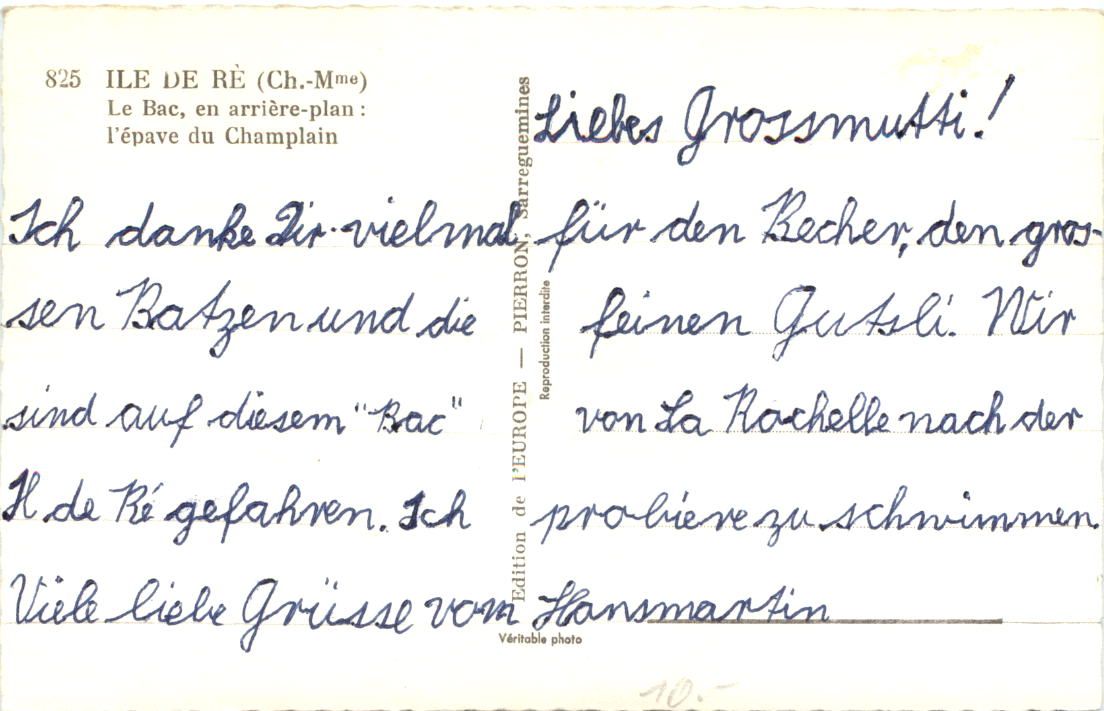 825 ILE DE RÈ (Ch.-Mme)
Le Bac, en arrière-plan :
l'épave du Champlain
Liebes Grossmutti!
Ich danke Dir vielmal für den Becher, den gros-
sen Batzen und die feinen Gutsli. Wir
sind auf diesem "Bac" von La Rochelle nach der
Il de Ré gefahren. Ich probiere zu schwimmen.
Viele liebe Grüsse vom Hansmartin
Edition de l'EUROPE — PIERRON, Sarreguemines
Reproduction interdite
Véritable photo
10.-